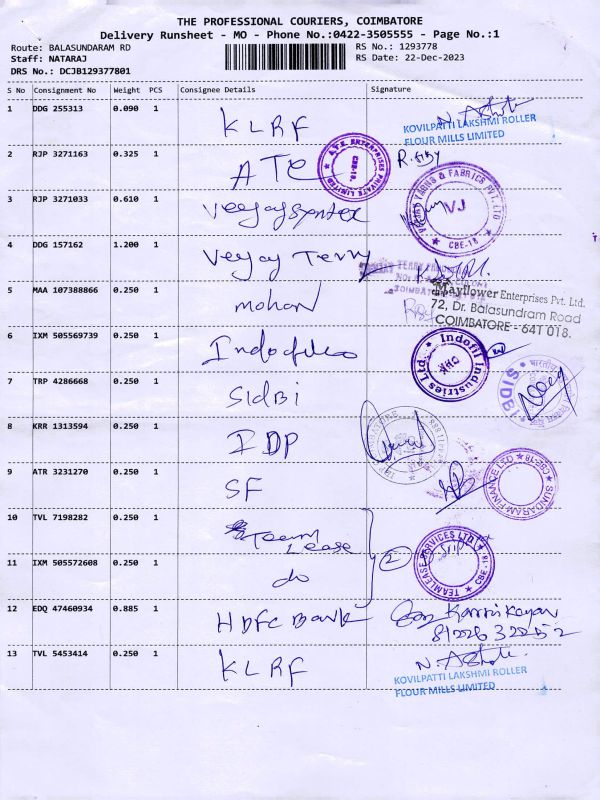 THE PROFESSIONAL COURIERS, COIMBATORE
Delivery Runsheet - MO - Phone No.:0422-3505555 - Page No.:1
Route: BALASUNDARAM RD
RS No.: 1293778
Staff: NATARAJ
RS Date: 22-Dec-2023
DRS No.: DCJB129377801
S No Consignment No Weight PCS Consignee Details Signature
1 DDG 255313 0.090 1 KLRF
KOVILPATTI LAKSHMI ROLLER
FLOUR MILLS LIMITED
2 RJP 3271163 0.325 1 ATE
A.T.E. ENTERPRISES PRIVATE LIMITED
CBE-18.
3 RJP 3271033 0.610 1 Veejay Syntex
YARNS & FABRICS PVT. LTD
VJ
CBE-18
4 DDG 157162 1.200 1 Veejay Terry
5 MAA 107388866 0.250 1 mohan
Mayflower Enterprises Pvt. Ltd.
72, Dr. Balasundram Road
COIMBATORE - 641 018.
6 IXM 505569739 0.250 1
Indofil Industries Ltd.
7 TRP 4286668 0.250 1 SIDBI
SIDBI
8 KRR 1313594 0.250 1 IDP
9 ATR 3231270 0.250 1 SF
SUNDARAM FINANCE LTD
CBE-18
10 TVL 7198282 0.250 1 Team
Lease
2
TEAMLEASE SERVICES LTD
CBE - 18
11 IXM 505572608 0.250 1 do
12 EDQ 47460934 0.885 1 HDFC Bank
13 TVL 5453414 0.250 1 KLRF
N. Ashok
KOVILPATTI LAKSHMI ROLLER
FLOUR MILLS LIMITED